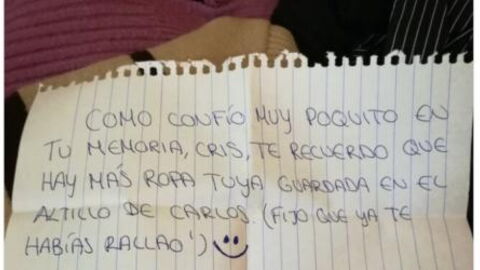 COMO CONFÍO MUY POQUITO EN
TU MEMORIA, CRIS, TE RECUERDO QUE
HAY MÁS ROPA TUYA GUARDADA EN EL
ALTILLO DE CARLOS. (FIJO QUE YA TE
HABÍAS RALLAO')